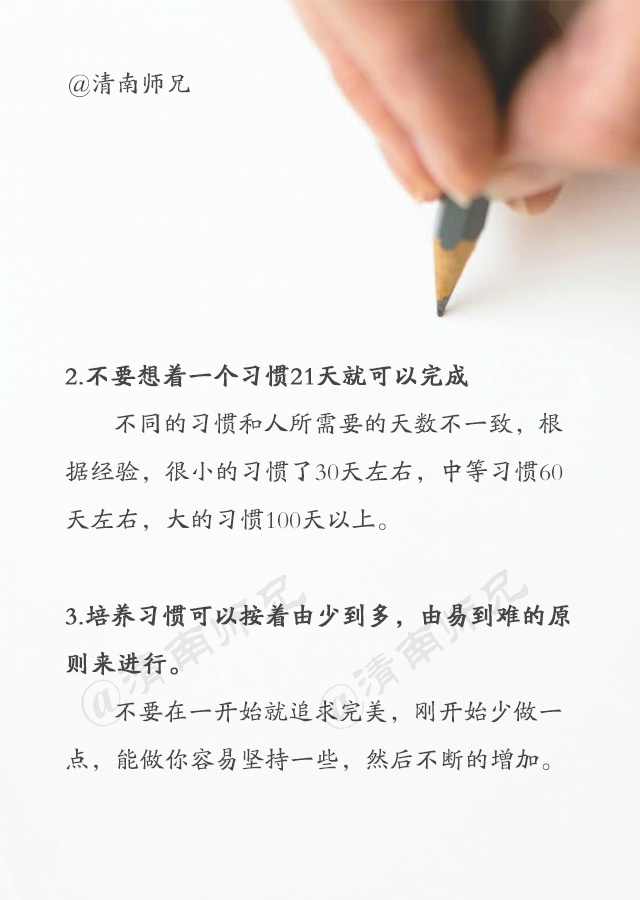 @清南师兄
2.不要想着一个习惯21天就可以完成
不同的习惯和人所需要的天数不一致，根
据经验，很小的习惯了30天左右，中等习惯60
天左右，大的习惯100天以上。
3.培养习惯可以按着由少到多，由易到难的原
则来进行。
不要在一开始就追求完美，刚开始少做一
点，能做你容易坚持一些，然后不断的增加。
@清南师兄
@清南师兄